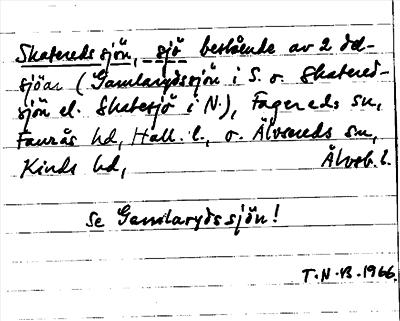 Skatereds sjön, sjö bestående av 2 del-
sjöar (Gamlarydssjön i S. o. Skatered-
sjön el. Skatesjö i N.), Fagereds sn,
Faurås hd, Hall. l., o. Älvsereds sn,
Kinds hd, Älvsb. l.
Se Gamlarydssjön!
T.N-B. 1966.